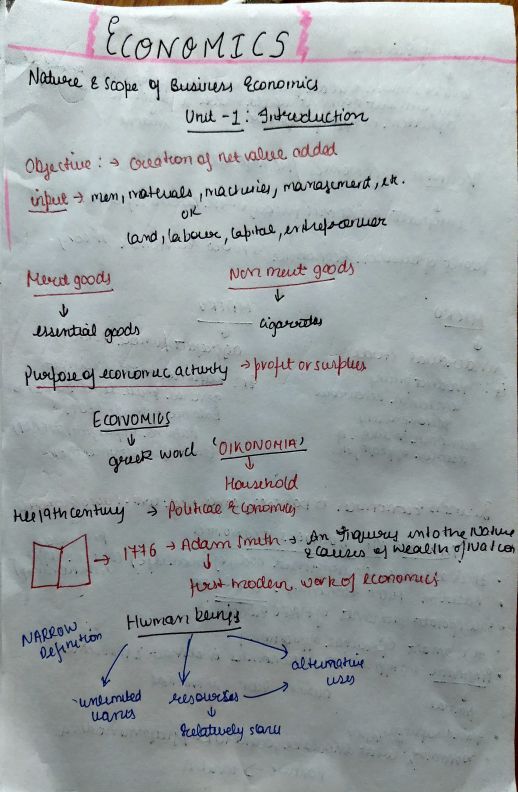 ECONOMICS
Nature & Scope of Business Economics
Unit -1: Introduction
Objective : → creation of net value added
input → men, materials, machines, management, etc.
OR
land, labour, capital, entrepreneur
Merit goods Non merit goods
↓ ↓
essential goods cigarettes
Purpose of economic activity → profit or surplus
ECONOMICS
↓
greek word 'OIKONOMIA'
↓
Household
19th century → Political Economics
→ 1776 → Adam Smith → An Inquiry into the Nature
& causes of Wealth of Nation
↓
first modern work of economics
Human beings
NARROW
Definition
alternative
uses
unlimited
wants
resources →
↓
Relatively